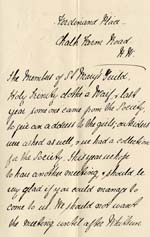 Ferdinand Place.
Chalk Farm Road
N.W.
The Members of St Mary's Guild.
Holy Trinity
last
year someone came from the Society
to give an address to the girls, outsiders
were asked as well, & we had a collection
for the Society. This year we hope
to have another meeting, & should be
very glad if you could manage to
come to us. We should not want
the meeting until after